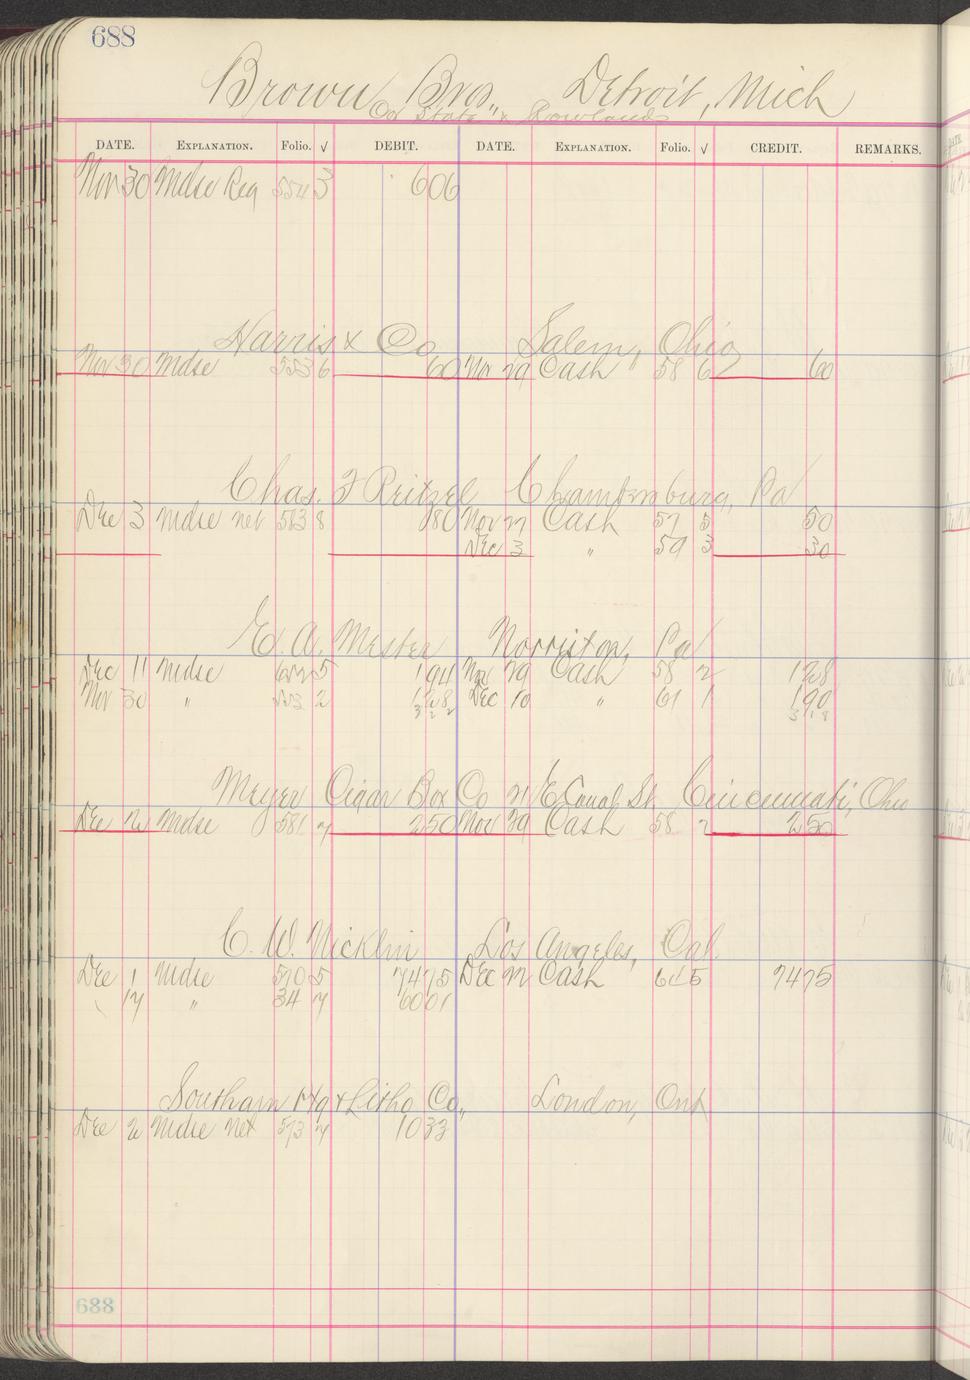 688
Brown Bros., Detroit, Mich
Cor State & Rowland
DATE. EXPLANATION. Folio. √ DEBIT. DATE. EXPLANATION. Folio. √ CREDIT. REMARKS.
Nov 30 Mdse Reg 554 3 606
Harris & Co Salem, Ohio
Nov 30 Mdse 553 6 60 Nov 29 Cash " 58 6 60
Chas. F Reitzel Chambersburg, Pa
Dec 3 Mdse net 563 8 80 Nov 27 Cash 57 5 50
Dec 3 " 59 3 30
E. A. Mester Norriston, Pa
Dec 11 Mdse 5 194 Nov 29 Cash 58 2 128
Nov 30 " 553 2 128 Dec 10 " 61 1 190
322 318
Meyer Cigar Box Co 21 E Canal St. Cincinnati, Ohio
Dec 2 Mdse 581 7 250 Nov 29 Cash 58 2 250
C. W. Nicklin Los Angeles, Cal
Dec 1 Mdse 570 5 7475 Dec Cash 5 7475
" 17 " 34 7 6001
Southam Ptg & Litho Co., London, Ont
Dec 2 Mdse Net 573 7 1033
688